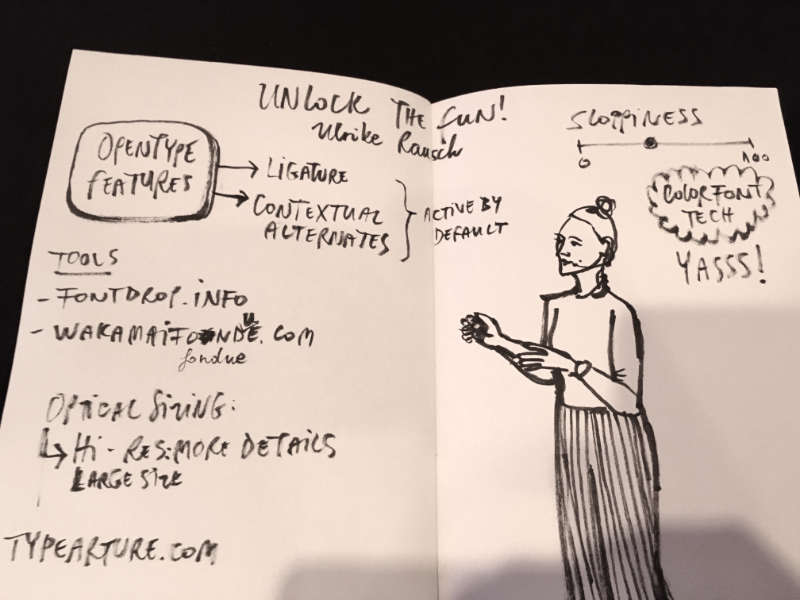 UNLOCK THE FUN!
Ulrike Rausch
OPENTYPE
FEATURES
LIGATURE
CONTEXTUAL
ALTERNATES
ACTIVE BY
DEFAULT
TOOLS
- FONTDROP.INFO
- WAKAMAIFONDUE.COM
fondue
OPTICAL SIZING:
Hi-RES: MORE DETAILS
LARGE SIZE
TYPEARTURE.COM
SLOPPINESS
0 100
COLORFONT
TECH
YASSS!